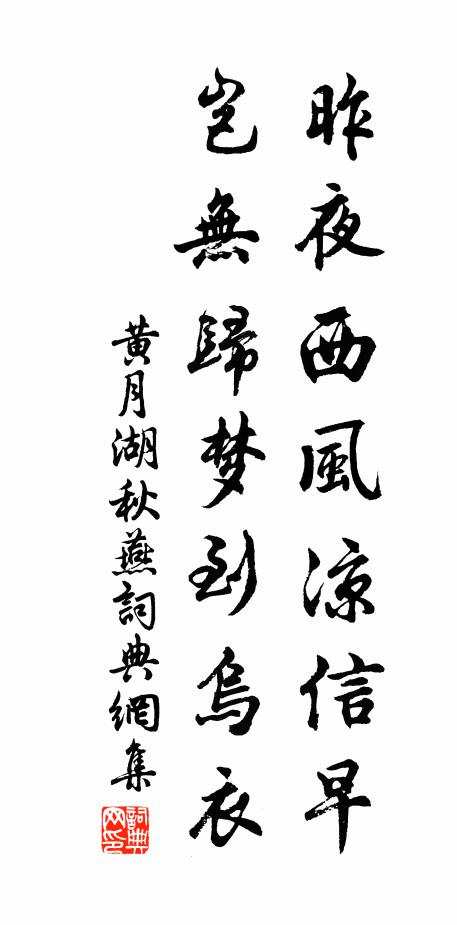 昨夜西風涼信早
豈無歸梦到烏衣
黄月湖秋燕詞典網集
詞典网印